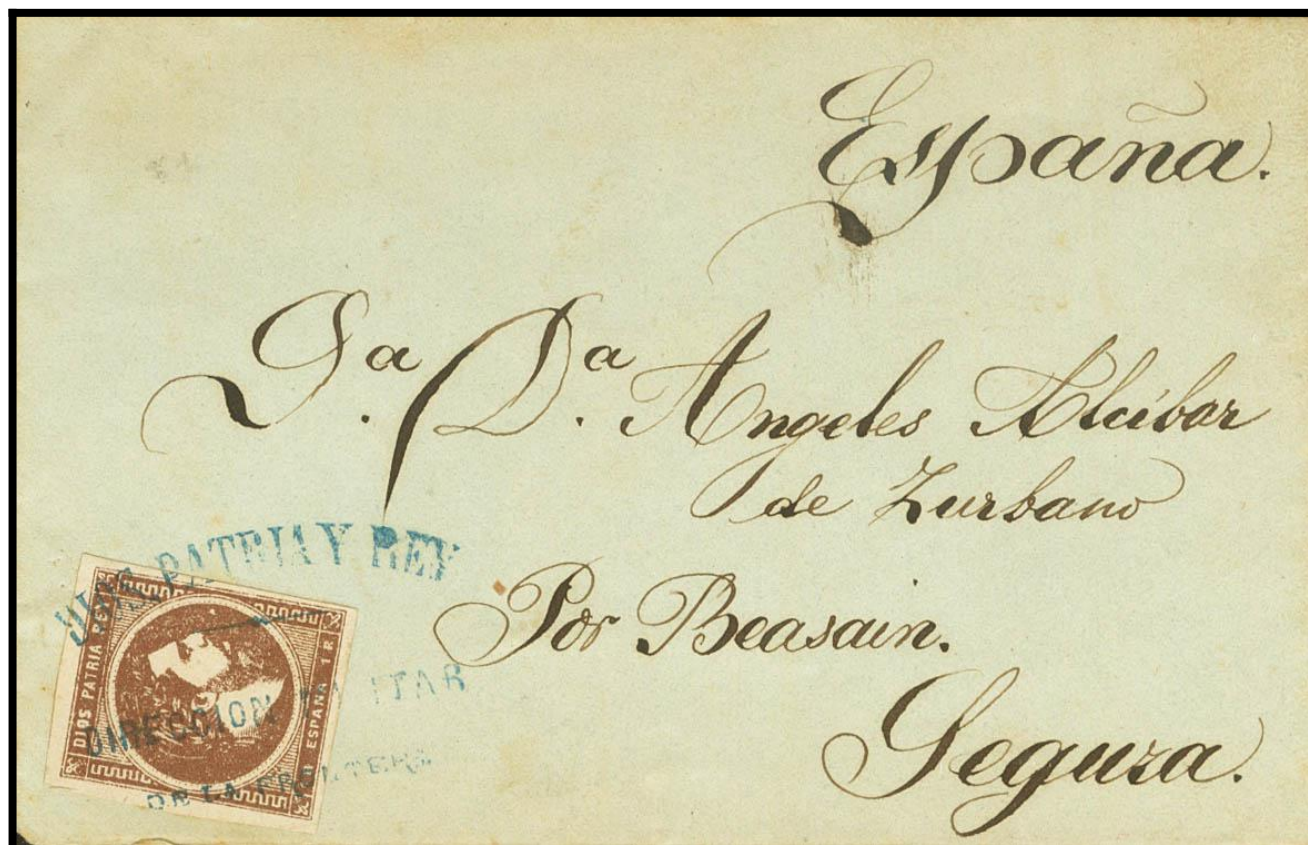 España.
Sª. Dª. Angeles Alcíbar
de Zurbano
Por Beasain.
Segura.
DIOS PATRIA Y REY
DIRECCION MILITAR
DE LA FRONTERA
DIOS PATRIA REY
ESPAÑA 1 R.